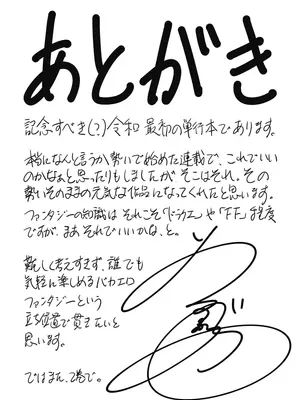 あとがき
記念すべき(?)令和 最初の単行本であります。
本当になんと言うか勢いで始めた連載で、これでいい
のかなぁと思ったりもしましたが そこはそれ、その
勢いそのままの元気な作品になってくれたと思います。
ファンタジーの知識は それこそ「ドラクエ」や「FF」程度
ですが、まぁそれでいいかな、と。
難しく考えすぎず、誰でも
気軽に楽しめるバカエロ
ファンタジーという
立ち位置で貫きたいと
思います。
ではまた、2巻で。